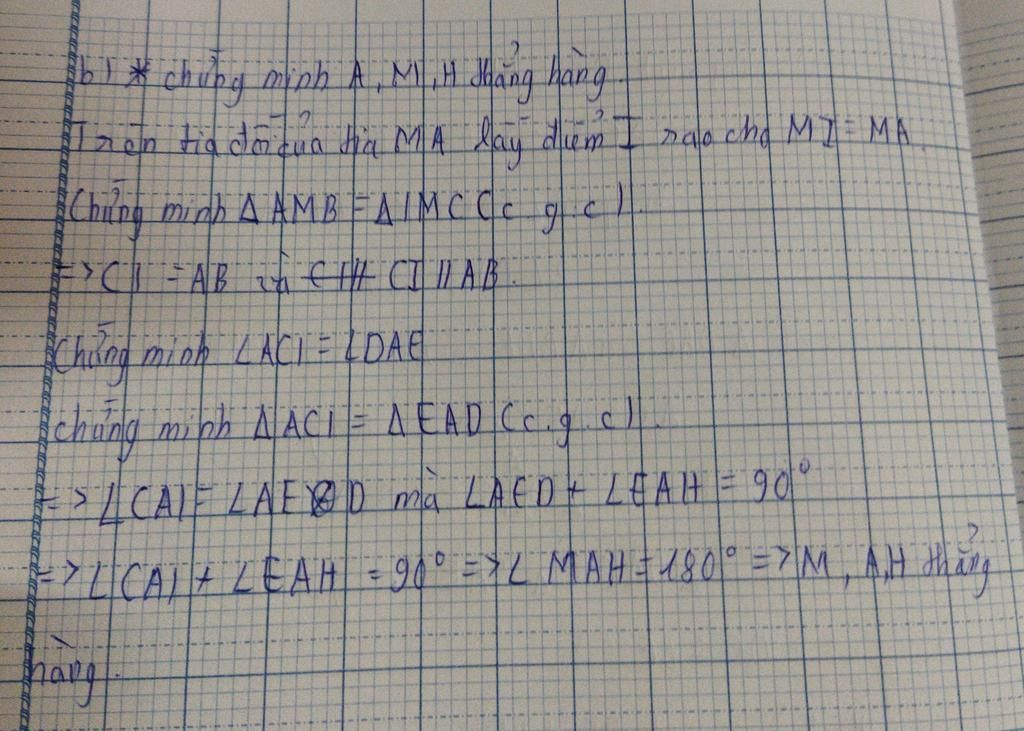 b) * chứng minh A, M, H thẳng hàng.
Trên tia đối của tia MA lấy điểm I sao cho MI = MA.
Chứng minh ΔAMB = ΔIMC (c.g.c).
=> CI = AB và CI // AB.
Chứng minh ∠ACI = ∠DAE
chứng minh ΔACI = ΔEAD (c.g.c).
=> ∠CAI = ∠AED mà ∠AED + ∠EAH = 90°
=> ∠CAI + ∠EAH = 90° => ∠MAH = 180° => M, A, H thẳng
hàng.